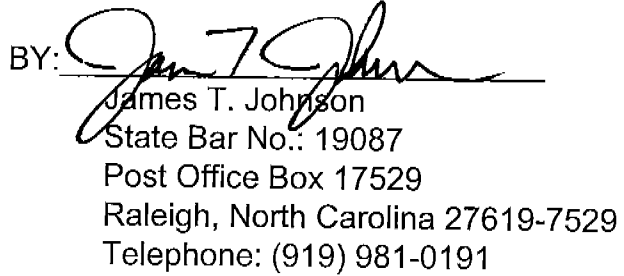 BY: James T. Johnson
James T. Johnson
State Bar No.: 19087
Post Office Box 17529
Raleigh, North Carolina 27619-7529
Telephone: (919) 981-0191